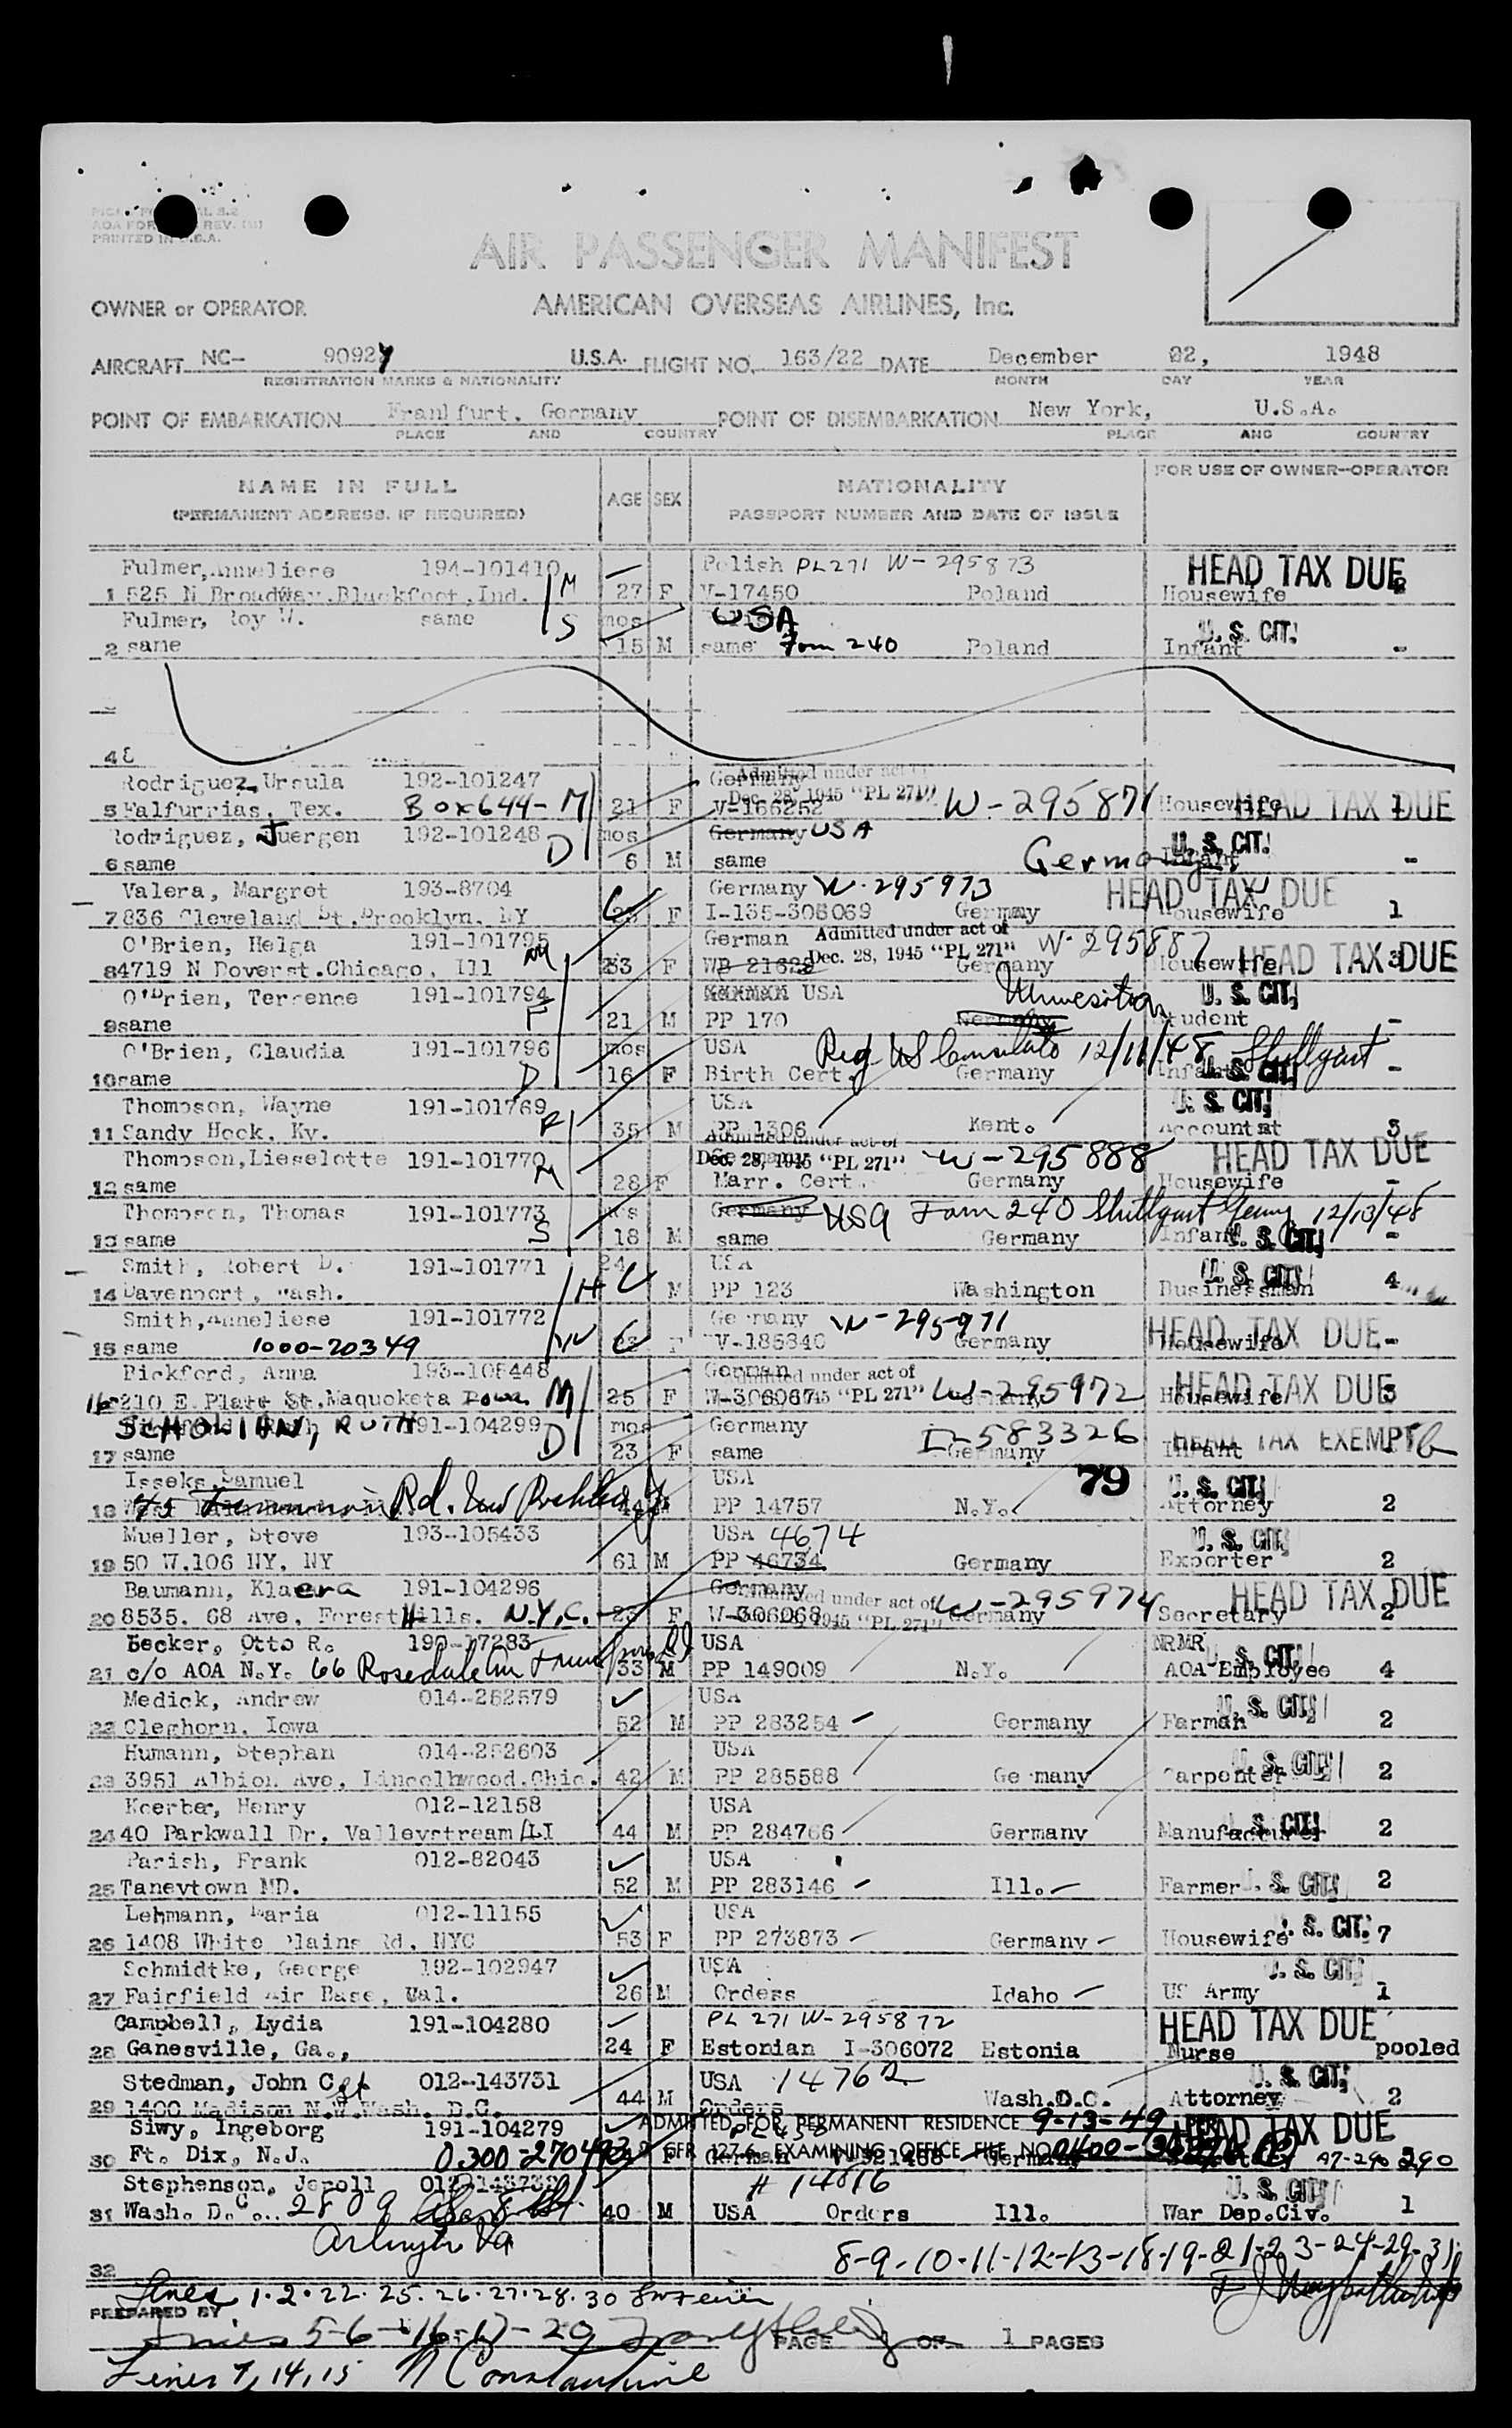 AIR PASSENGER MANIFEST
OWNER or OPERATOR AMERICAN OVERSEAS AIRLINES, Inc.
AIRCRAFT NC- U.S.A. FLIGHT NO. 163/22 DATE December 22, 1948
REGISTRATION MARKS & NATIONALITY MONTH DAY YEAR
POINT OF EMBARKATION Frankfurt, Germany POINT OF DISEMBARKATION New York, U.S.A.
PLACE AND COUNTRY PLACE AND COUNTRY
FOR USE OF OWNER-OPERATOR
NAME IN FULL AGE SEX NATIONALITY
(PERMANENT ADDRESS, IF REQUIRED) PASSPORT NUMBER AND DATE OF ISSUE
Fulmer, Anneliese 194-101410 M Polish PL271 W-295873 HEAD TAX DUE
1 525 N Broadway, Blackfoot, Ind. 27 F V-17450 Poland Housewife
Fulmer, Roy W. same S mos USA U. S. CIT.
2 same 15 M same Form 240 Poland Infant -
4
Rodriguez, Ursula 192-101247 Germany Admitted under act of
5 Falfurrias, Tex. Box 644- M 21 F V-166252 Dec. 28, 1945 "PL 271" W-295871 Housewife HEAD TAX DUE 1
Rodriguez, Juergen 192-101248 D mos Germany USA U. S. CIT.
6 same 6 M same Germany Infant -
Valera, Margret 193-8704 Germany W-295973 HEAD TAX DUE
7 836 Cleveland St. Brooklyn, NY F I-135-306069 Germany Housewife 1
O'Brien, Helga 191-101795 M German Admitted under act of W-295887
8 4719 N Dover st. Chicago, Ill F WB 21622 Dec. 28, 1945 "PL 271" Germany Housewife HEAD TAX DUE 3
O'Brien, Terrence 191-101794 F USA U. S. CIT.
9 same 21 M PP 170 Germany Student -
O'Brien, Claudia 191-101796 D mos USA Reg US Consulate 12/11/48 Stuttgart
10 same 16 F Birth Cert. Germany Infant U. S. CIT. -
Thompson, Wayne 191-101769 USA U. S. CIT.
11 Sandy Hook, Ky. 35 M PP 1306 Kent. Accountat 3
Thompson, Lieselotte 191-101770 M Admitted under act of Dec. 28, 1945 "PL 271" W-295888 HEAD TAX DUE
12 same 28 F Marr. Cert. Germany Housewife -
Thompson, Thomas 191-101773 S Germany USA Form 240 Stuttgart Germ 12/13/48
13 same 18 M same Germany Infant U. S. CIT. -
Smith, Robert D. 191-101771 H 24 USA U. S. CIT.
14 Davenport, Wash. M PP 123 Washington Businessman 4
Smith, Anneliese 191-101772 W Germany W-295971 HEAD TAX DUE
15 same 1000-20349 F V-185340 Germany Housewife -
Pickford, Anna 193-105448 M German Admitted under act of
16 210 E. Platt St. Maquoketa Iowa 25 F W-306067 "PL 271" W-295972 Housewife HEAD TAX DUE 3
SCHOLIAN, RUTH 191-104299 D mos Germany I-583326 HEAD TAX EXEMPT
17 same 23 F same Germany Infant
Isseks, Samuel USA 79 U. S. CIT.
18 Rd. New Rochelle 44 M PP 14757 N.Y. Attorney 2
Mueller, Steve 193-105433 USA 4674 U. S. CIT.
19 50 W.106 NY, NY 61 M PP 46734 Germany Exporter 2
Baumann, Klaera 191-104296 Germany Admitted under act of W-295974 HEAD TAX DUE
20 8535. 68 Ave, Forest Hills. N.Y.C. F W-306068 1945 "PL 271" Germany Secretary 2
Becker, Otto R. USA U. S. CIT.
21 c/o AOA N.Y. 66 Rosedale 33 M PP 149009 N.Y. AOA Employee 4
Medick, Andrew 014-282579 USA U. S. CIT.
22 Cleghorn, Iowa 52 M PP 283254 Germany Farman 2
Humann, Stephan 014-252603 USA U. S. CIT.
23 3951 Albion Ave, Lincolnwood, Chic. 42 M PP 285588 Germany Carpenter 2
Koerber, Henry 012-12158 USA U. S. CIT.
24 40 Parkwall Dr. Valleystream LI 44 M PP 284766 Germany Manufacturer 2
Parish, Frank 012-82043 USA
25 Taneytown MD. 52 M PP 283146 Ill. Farmer U. S. CIT. 2
Lehmann, Maria 012-11155 USA
26 1408 White Plains Rd, NYC 53 F PP 273873 Germany Housewife U. S. CIT. 7
Schmidtke, George 192-102947 USA U. S. CIT.
27 Fairfield Air Base, Cal. 26 M Orders Idaho US Army 1
Campbell, Lydia 191-104280 PL 271 W-295872 HEAD TAX DUE
28 Ganesville, Ga., 24 F Estonian I-306072 Estonia Nurse pooled
Stedman, John C 012-143731 USA 14762 U. S. CIT.
29 1400 Madison N.W. Wash. D.C. 44 M Orders Wash.D.C. Attorney 2
Siwy, Ingeborg 191-104279 ADMITTED FOR PERMANENT RESIDENCE 9-13-49 HEAD TAX DUE
30 Ft. Dix, N.J. 0300-270493 F 8 CFR 127.6 EXAMINING OFFICE FILE NO. Germany
Stephenson, Jeroll # 14816 U. S. CIT.
31 Wash. D.C. 2809 40 M USA Orders Ill. War Dep.Civ. 1
Arlington Va
32 8-9-10-11-12-13-18-19-21-23-24-29-31
Lines 1-2-22-25-26-27-28-30
PREPARED BY
Lines 5-6-16-17-20 PAGE OF 1 PAGES
Lines 7, 14, 15 N Constantine